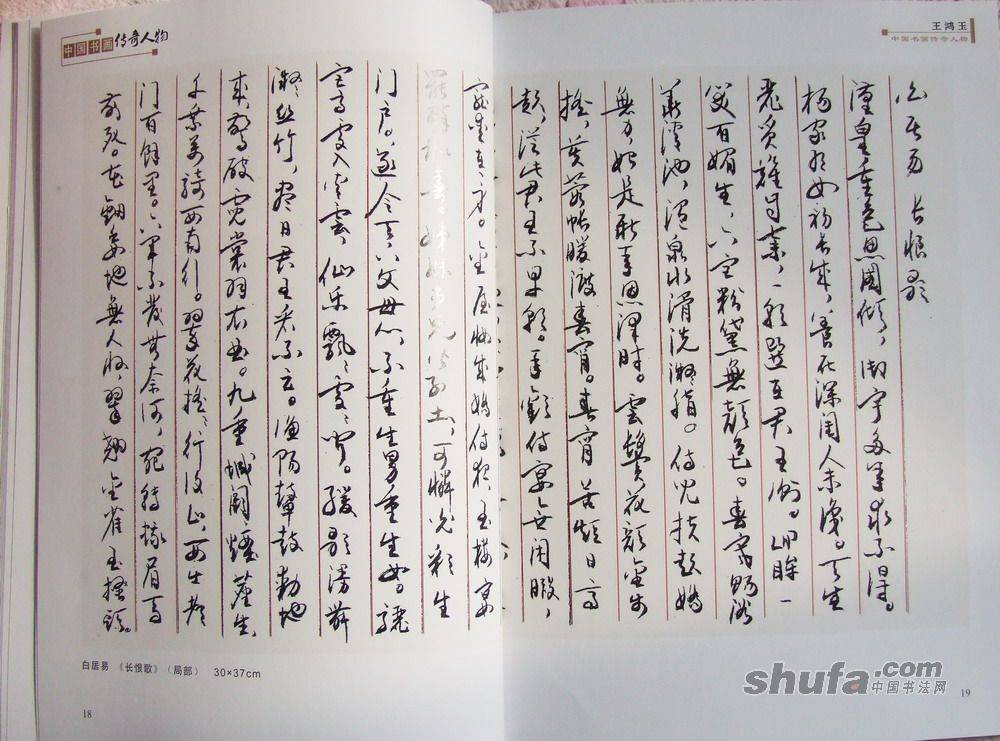 中国书画传奇人物
王鸿玉
中国书画传奇人物
白居易 长恨歌
漢皇重色思國倾，御宇多年求不得。
杨家有女初长成，養在深闺人未識。天生
麗质難自棄，一朝選在君王側。回眸一
笑百媚生，六宫粉黛無颜色。春寒賜浴
華清池，温泉水滑洗凝脂。侍兒扶起嬌
無力，始是新承恩澤時。雲鬓花颜金步
摇，芙蓉帐暖渡春宵。春宵苦短日高
起，從此君王不早朝。承歡侍宴無闲暇，
寵爱在一身。金屋妝成嬌侍夜，玉樓宴
罷醉和春。姊妹弟兄皆列土，可憐光彩生
门户。遂令天下父母心，不重生男重生女。驪
宫高處入青雲，仙乐飘飘處處闻。缓歌慢舞
凝丝竹，尽日君王看不足。渔陽鼙鼓動地
来，驚破霓裳羽衣曲。九重城阙烟塵生，
千乘萬骑西南行。翠花摇摇行復止，西出都
门百餘里。六军不發無奈何，宛转蛾眉马
前死。花钿委地無人收，翠翘金雀玉搔頭。
白居易 《长恨歌》（局部） 30×37cm
18
19
shufa.com
中国书法网